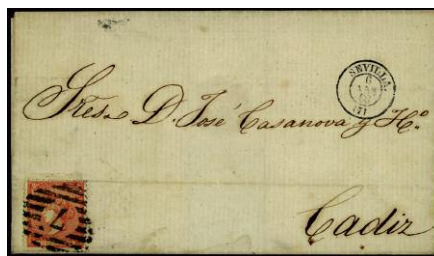 SEVILLA
6
(7)
Sres. D. José Casanova y Hº
Cadiz
7